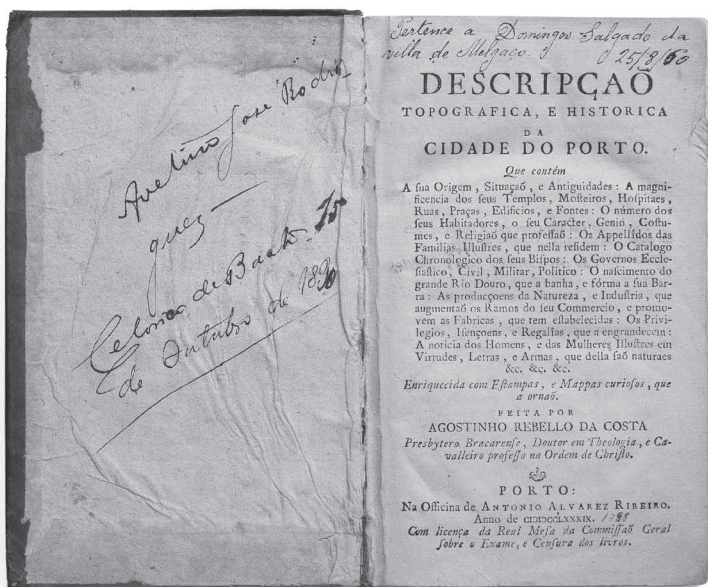 Avelino José Rodri
guez
Celorico de Basto 15
de Outubro de 1890
Pertence a Domingos Salgado da
villa de Melgaço. 25/8/60
DESCRIPÇAÕ
TOPOGRAFICA, E HISTORICA
DA
CIDADE DO PORTO.
Que contém
A ſua Origem, Situaçaõ, e Antiguidades: A magni-
ficencia dos ſeus Templos, Moſteiros, Hoſpitaes,
Ruas, Praças, Edificios, e Fontes: O número dos
ſeus Habitadores, o ſeu Caracter, Genio, Coſtu-
mes, e Religiaõ que profeſſaõ: Os Appellidos das
Familias Illuſtres, que nella reſidem: O Catalogo
Chronologico dos ſeus Biſpos: Os Governos Eccle-
ſiaſtico, Civil, Militar, Politico: O naſcimento do
grande Rio Douro, que a banha, e fórma a ſua Bar-
ra: As producçoens da Natureza, e Induſtria, que
augmentaõ os Ramos do ſeu Commercio, e promo-
vem as Fabricas, que tem eſtabelecidas: Os Privi-
legios, Iſençoens, e Regalías, que a engrandecem:
A noticia dos Homens, e das Mulheres Illuſtres em
Virtudes, Letras, e Armas, que della ſaõ naturaes
&c. &c. &c.
Enriquecida com Eſtampas, e Mappas curioſos, que
a ornaõ.
FEITA POR
AGOSTINHO REBELLO DA COSTA
Presbytero Bracarenſe, Doutor em Theologia, e Ca-
valleiro profeſſo na Ordem de Chriſto.
PORTO:
Na Officina de ANTONIO ALVAREZ RIBEIRO.
Anno de CIƆIƆCCLXXXIX. 1788
Com licença da Real Meſa da Commiſſaõ Geral
ſobre o Exame, e Cenſura dos livros.